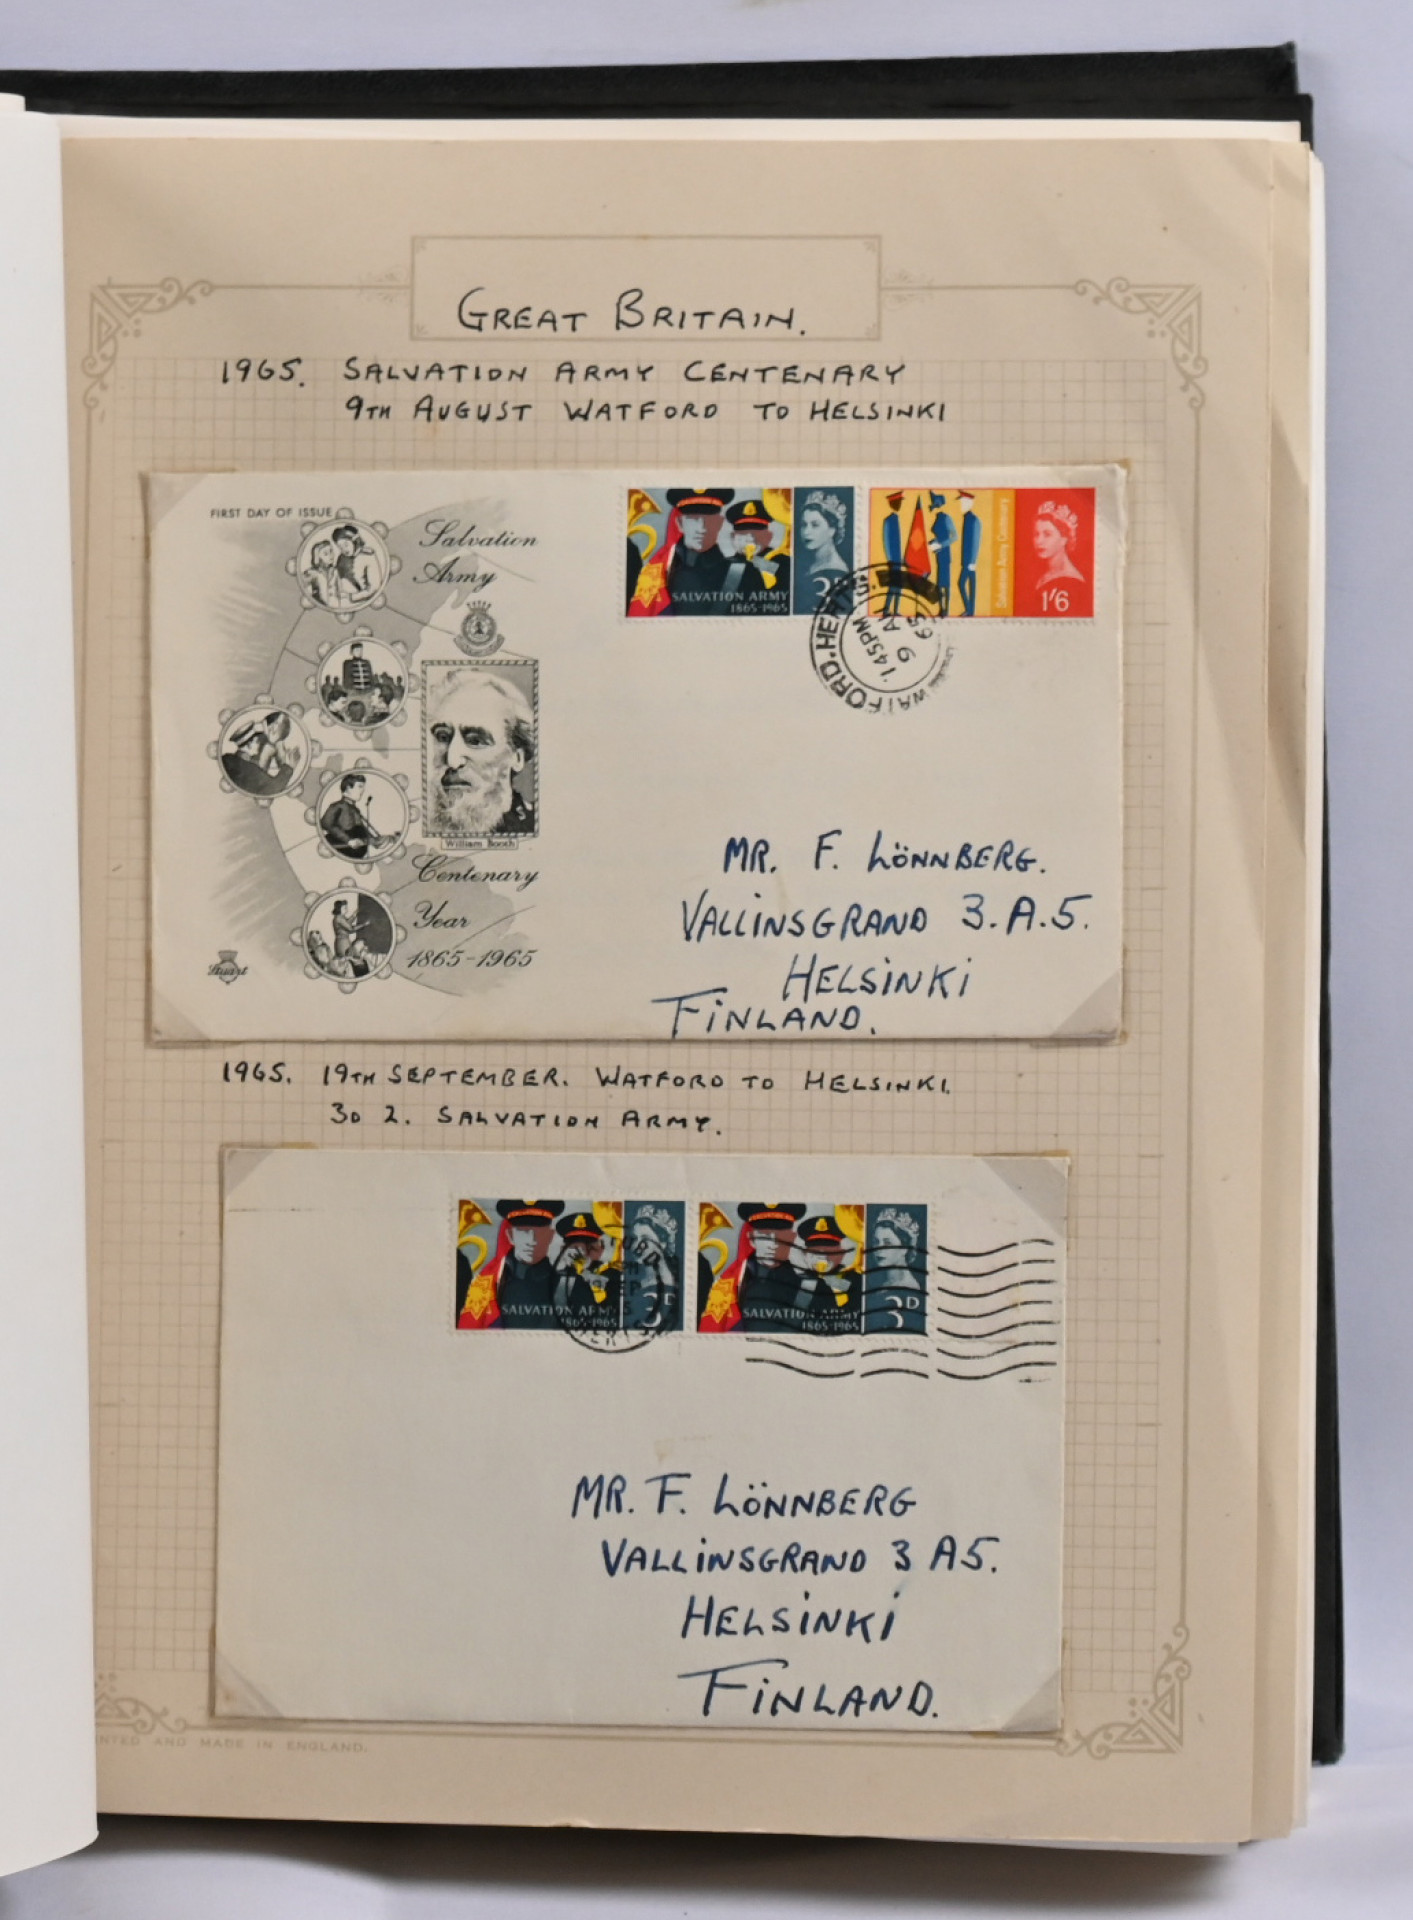 GREAT BRITAIN.
1965. SALVATION ARMY CENTENARY
9TH AUGUST WATFORD TO HELSINKI
FIRST DAY OF ISSUE
Salvation
Army
William Booth
Centenary
Year
1865-1965
Stuart
SALVATION ARMY
1865-1965
3D
Salvation Army Centenary
1'6
WATFORD. HERTS.
1 45 PM
9 AU
65
WATFORD
MR. F. LÖNNBERG.
VALLINSGRAND 3.A.5.
HELSINKI
FINLAND.
1965. 19TH SEPTEMBER. WATFORD TO HELSINKI.
3D 2. SALVATION ARMY.
SALVATION ARMY
1865-1965
3D
SALVATION ARMY
1865-1965
3D
MR. F. LÖNNBERG
VALLINSGRAND 3 A5.
HELSINKI
FINLAND.
NTED AND MADE IN ENGLAND.